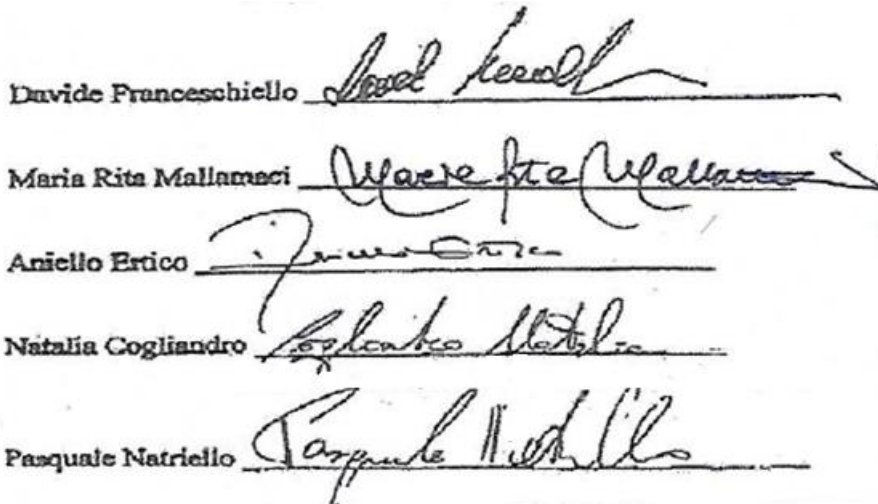 Davide Franceschiello
Maria Rita Mallamaci Maria Rita Mallamaci
Aniello Ertico
Natalia Cogliandro Cogliandro Natalia
Pasquale Natriello Pasquale Natriello